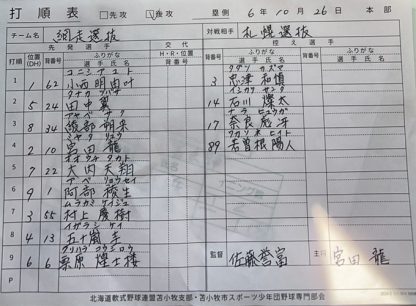 打順表 □先攻 ☑後攻 塁側 6年10月26日 本部
チーム名 網走選抜 対戦相手 札幌選抜
先発選手 交代 控え選手
打順 位置(DH) 背番号 ふりがな 選手氏名 H・R・位置 背番号 背番号 ふりがな 選手氏名 背番号 ふりがな 選手氏名
コニシ アユト
1 1 62 小西明由叶
タナカ ツバサ
2 5 24 田中翼
アヤベ サク
3 8 34 綾部朔来
ミヤタ リュウ
4 2 10 宮田龍
オオウチ タカト
5 7 22 大内天翔
アベ リョウセイ
6 9 1 阿部稜生
ムラカミ ケイジュ
7 3 55 村上慶樹
イガラシ
8 4 13 五十嵐
クリハラ コウシロウ
9 6 6 栗原煌士楼
P
タダツ カズマ
3 忠津和慎
イシカワ サンタ
14 石川燦太
ナラ ヒュウガ
17 奈良彪冴
ワカソネ ヒイト
89 若曽根陽人
監督 佐藤誉富 主将 宮田龍
北海道軟式野球連盟苫小牧支部・苫小牧市スポーツ少年団野球専門部会